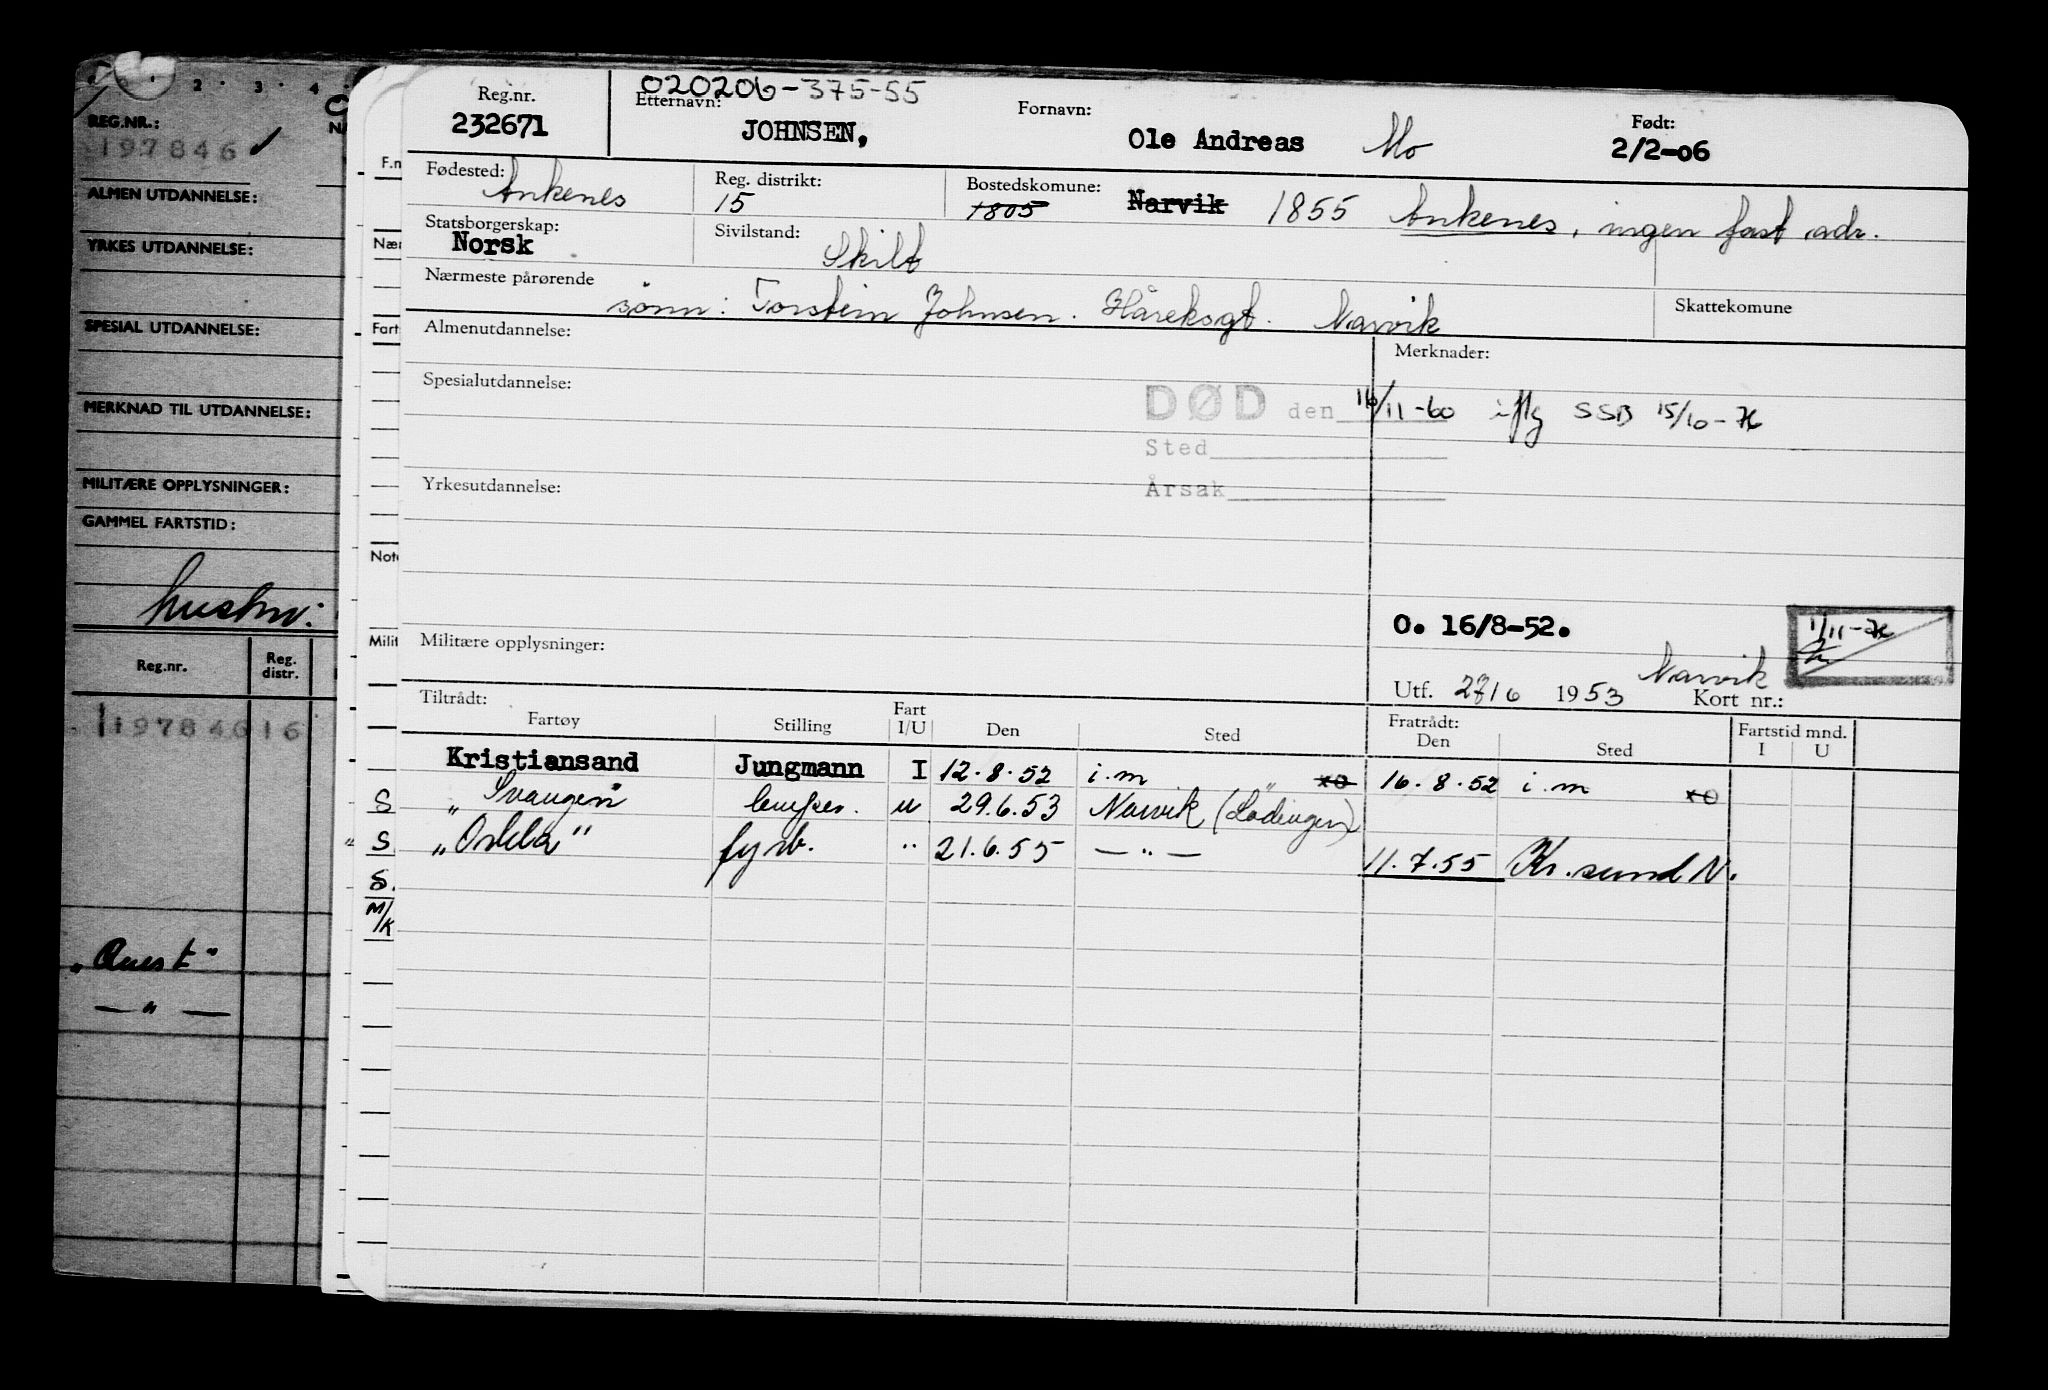 2 · 3 · 4
REG.NR.:
197846
ALMEN UTDANNELSE:
YRKES UTDANNELSE:
SPESIAL UTDANNELSE:
MERKNAD TIL UTDANNELSE:
MILITÆRE OPPLYSNINGER:
GAMMEL FARTSTID:
hustru:
Reg.nr. Reg. distr.
19784616
"Quest"
— " —
F.n
Nær
Fart
Not
Milit
S
S
S.
M/K
020206-375-55
Reg.nr. Etternavn: Fornavn: Født:
232671 JOHNSEN, Ole Andreas Mo 2/2-06
Fødested: Ankenes Reg. distrikt: 15 Bostedskommune: 1805 Narvik 1855 Ankenes, ingen fast adr.
Statsborgerskap: Norsk Sivilstand: Skilt
Nærmeste pårørende sønn: Torstein Johnsen. Håreksgt. Narvik Skattekomune
Almenutdannelse: Merknader:
Spesialutdannelse:
DØD den 16/11-60 iflg SSB 15/10-76
Sted
Årsak
Yrkesutdannelse:
O. 16/8-52.
Militære opplysninger: 1/11-76
Narvik
Utf. 27/6 1953 Kort nr.:
Tiltrådt: Fratrådt:
Fartøy Stilling Fart I/U Den Sted Den Sted Fartstid mnd. I U
Kristiansand Jungmann I 12.8.52 i.m xo 16.8.52 i.m xo
"Svaugen" u 29.6.53 Narvik (Lødingen)
fyrb. " 21.6.55 — " — 11.7.55 Kr.sund N.